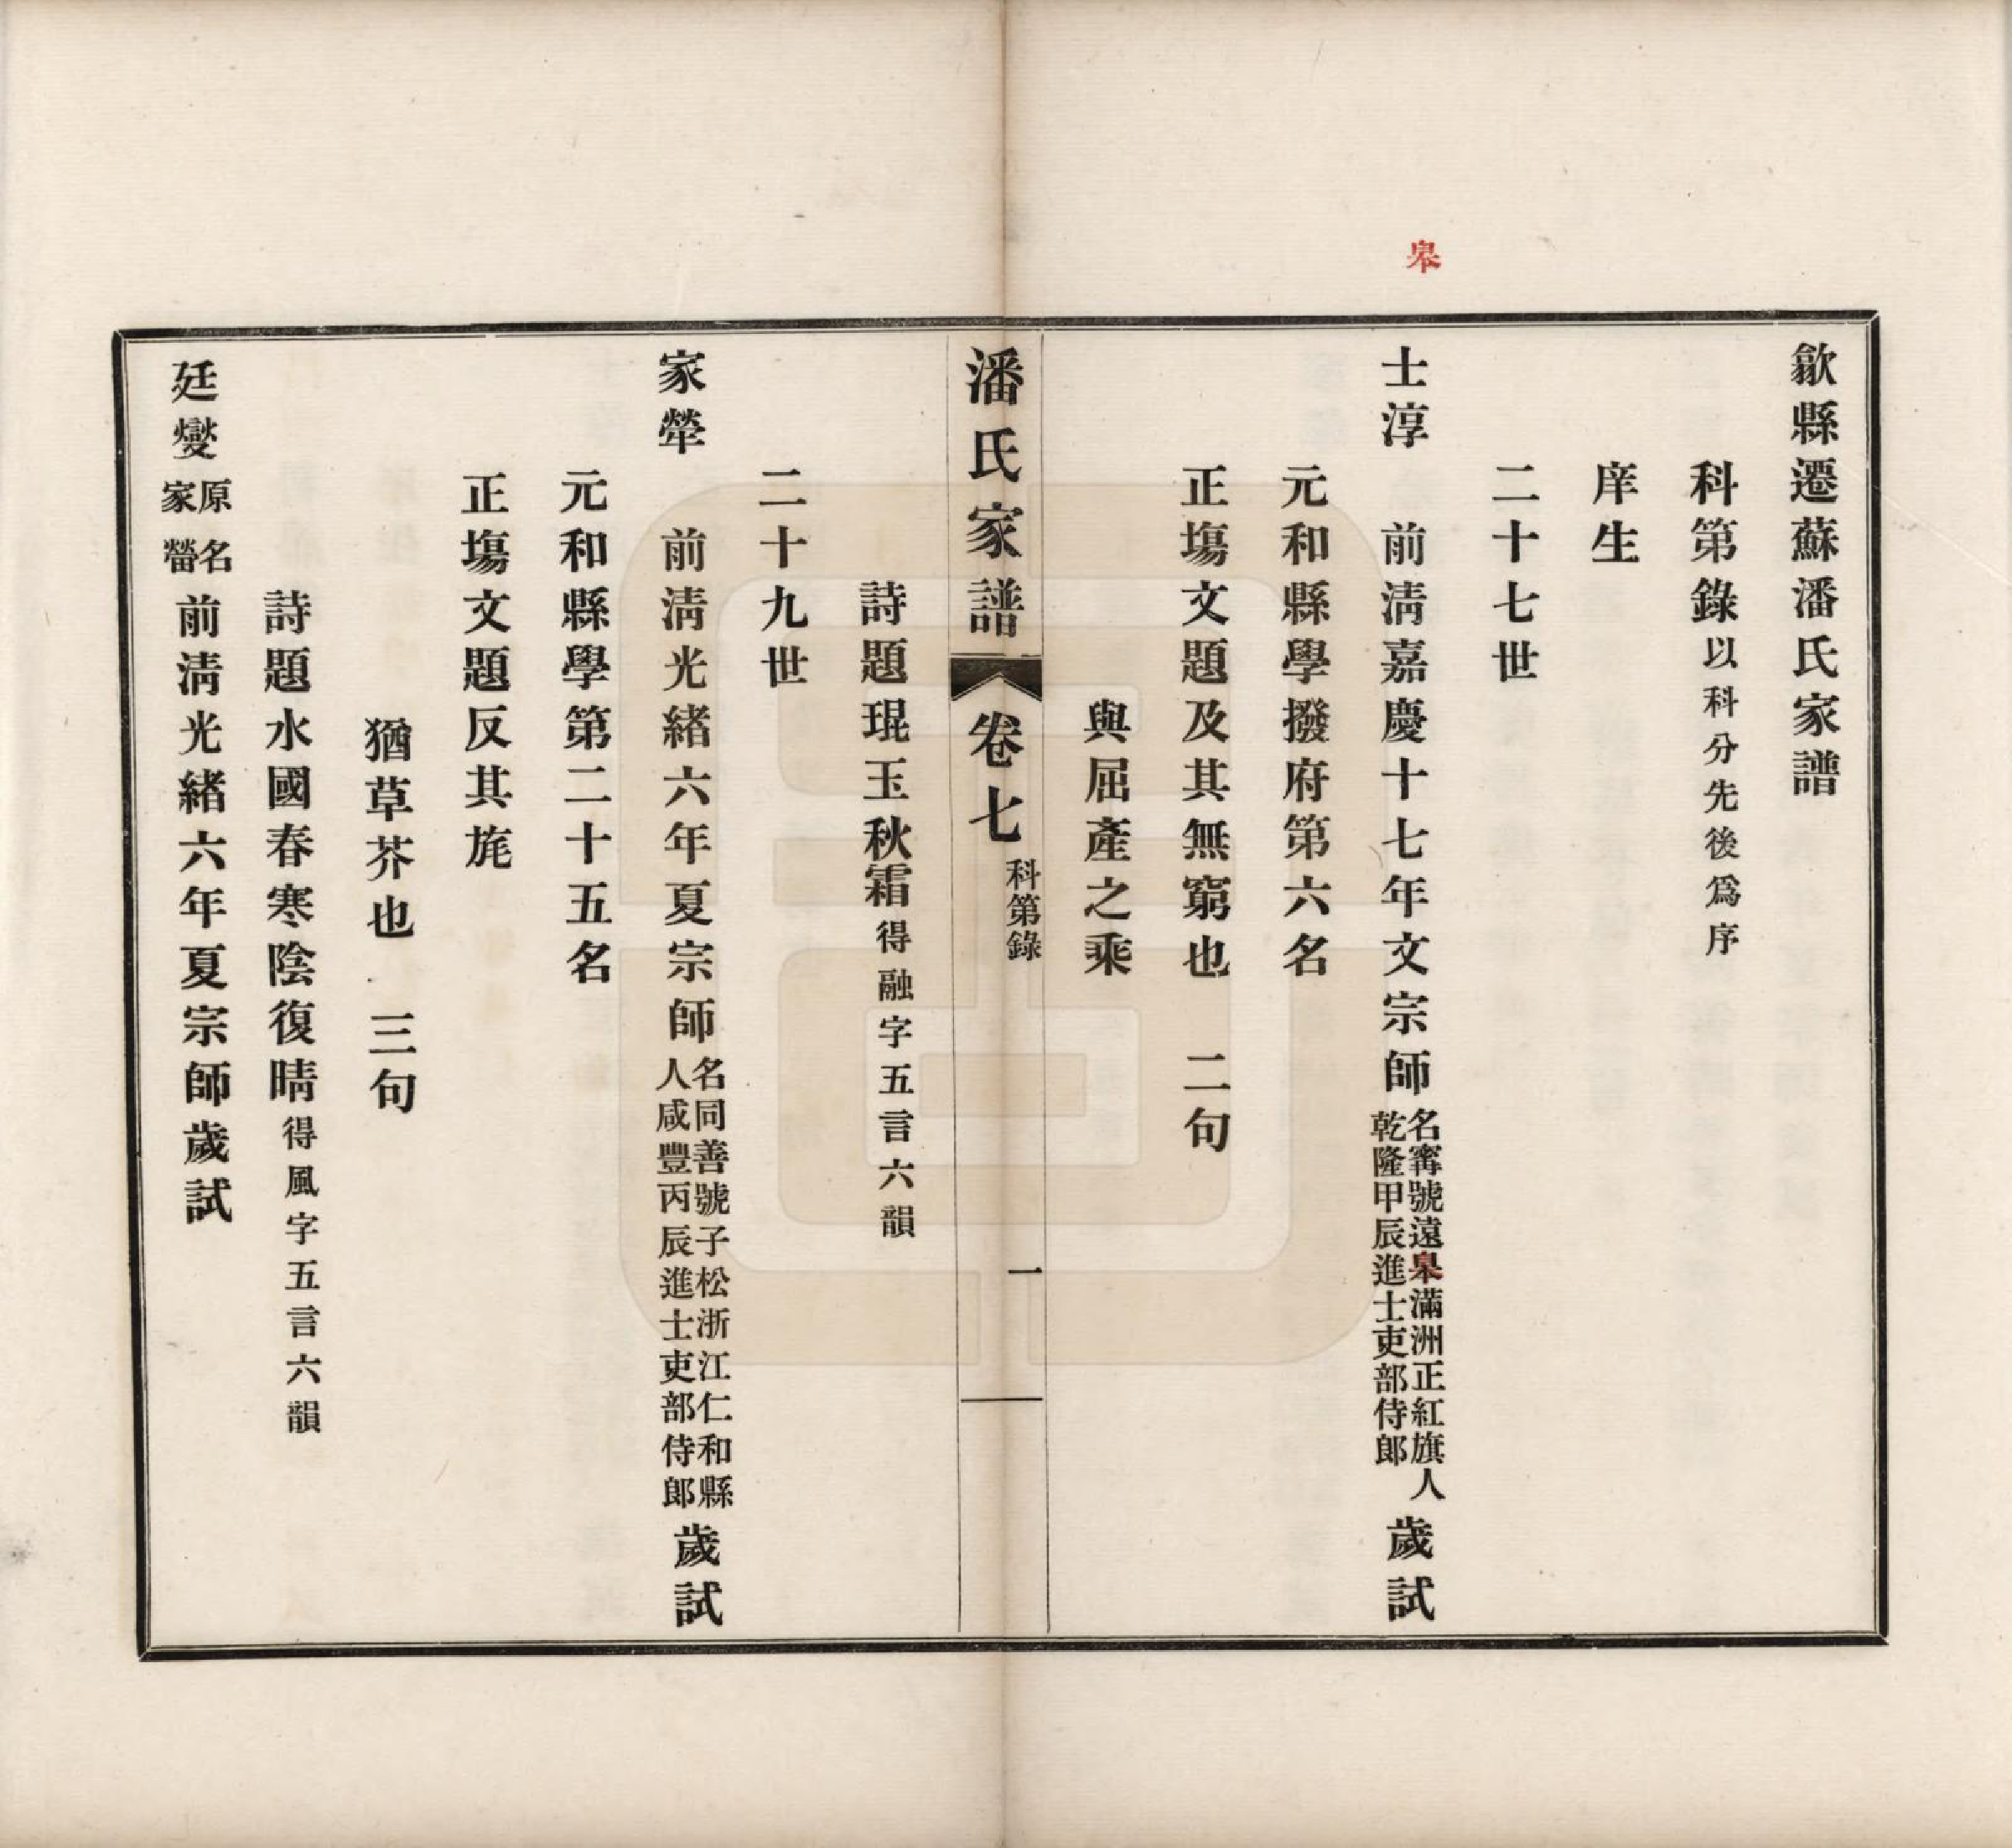 皋
歙縣遷蘇潘氏家譜
科第錄以科分先後爲序
庠生
二十七世
士淳 前淸嘉慶十七年文宗師名甯號遠皋滿洲正紅旗人乾隆甲辰進士吏部侍郎歲試
元和縣學撥府第六名
正塲文題及其無窮也 二句
與屈產之乘
潘氏家譜 卷七 科第錄 一
詩題琨玉秋霜得融字五言六韻
二十九世
家犖 前淸光緒六年夏宗師名同善號子松浙江仁和縣人咸豐丙辰進士吏部侍郎歲試
元和縣學第二十五名
正塲文題反其旄
猶草芥也 三句
詩題水國春寒陰復晴得風字五言六韻
廷燮原名家罃前淸光緒六年夏宗師歲試